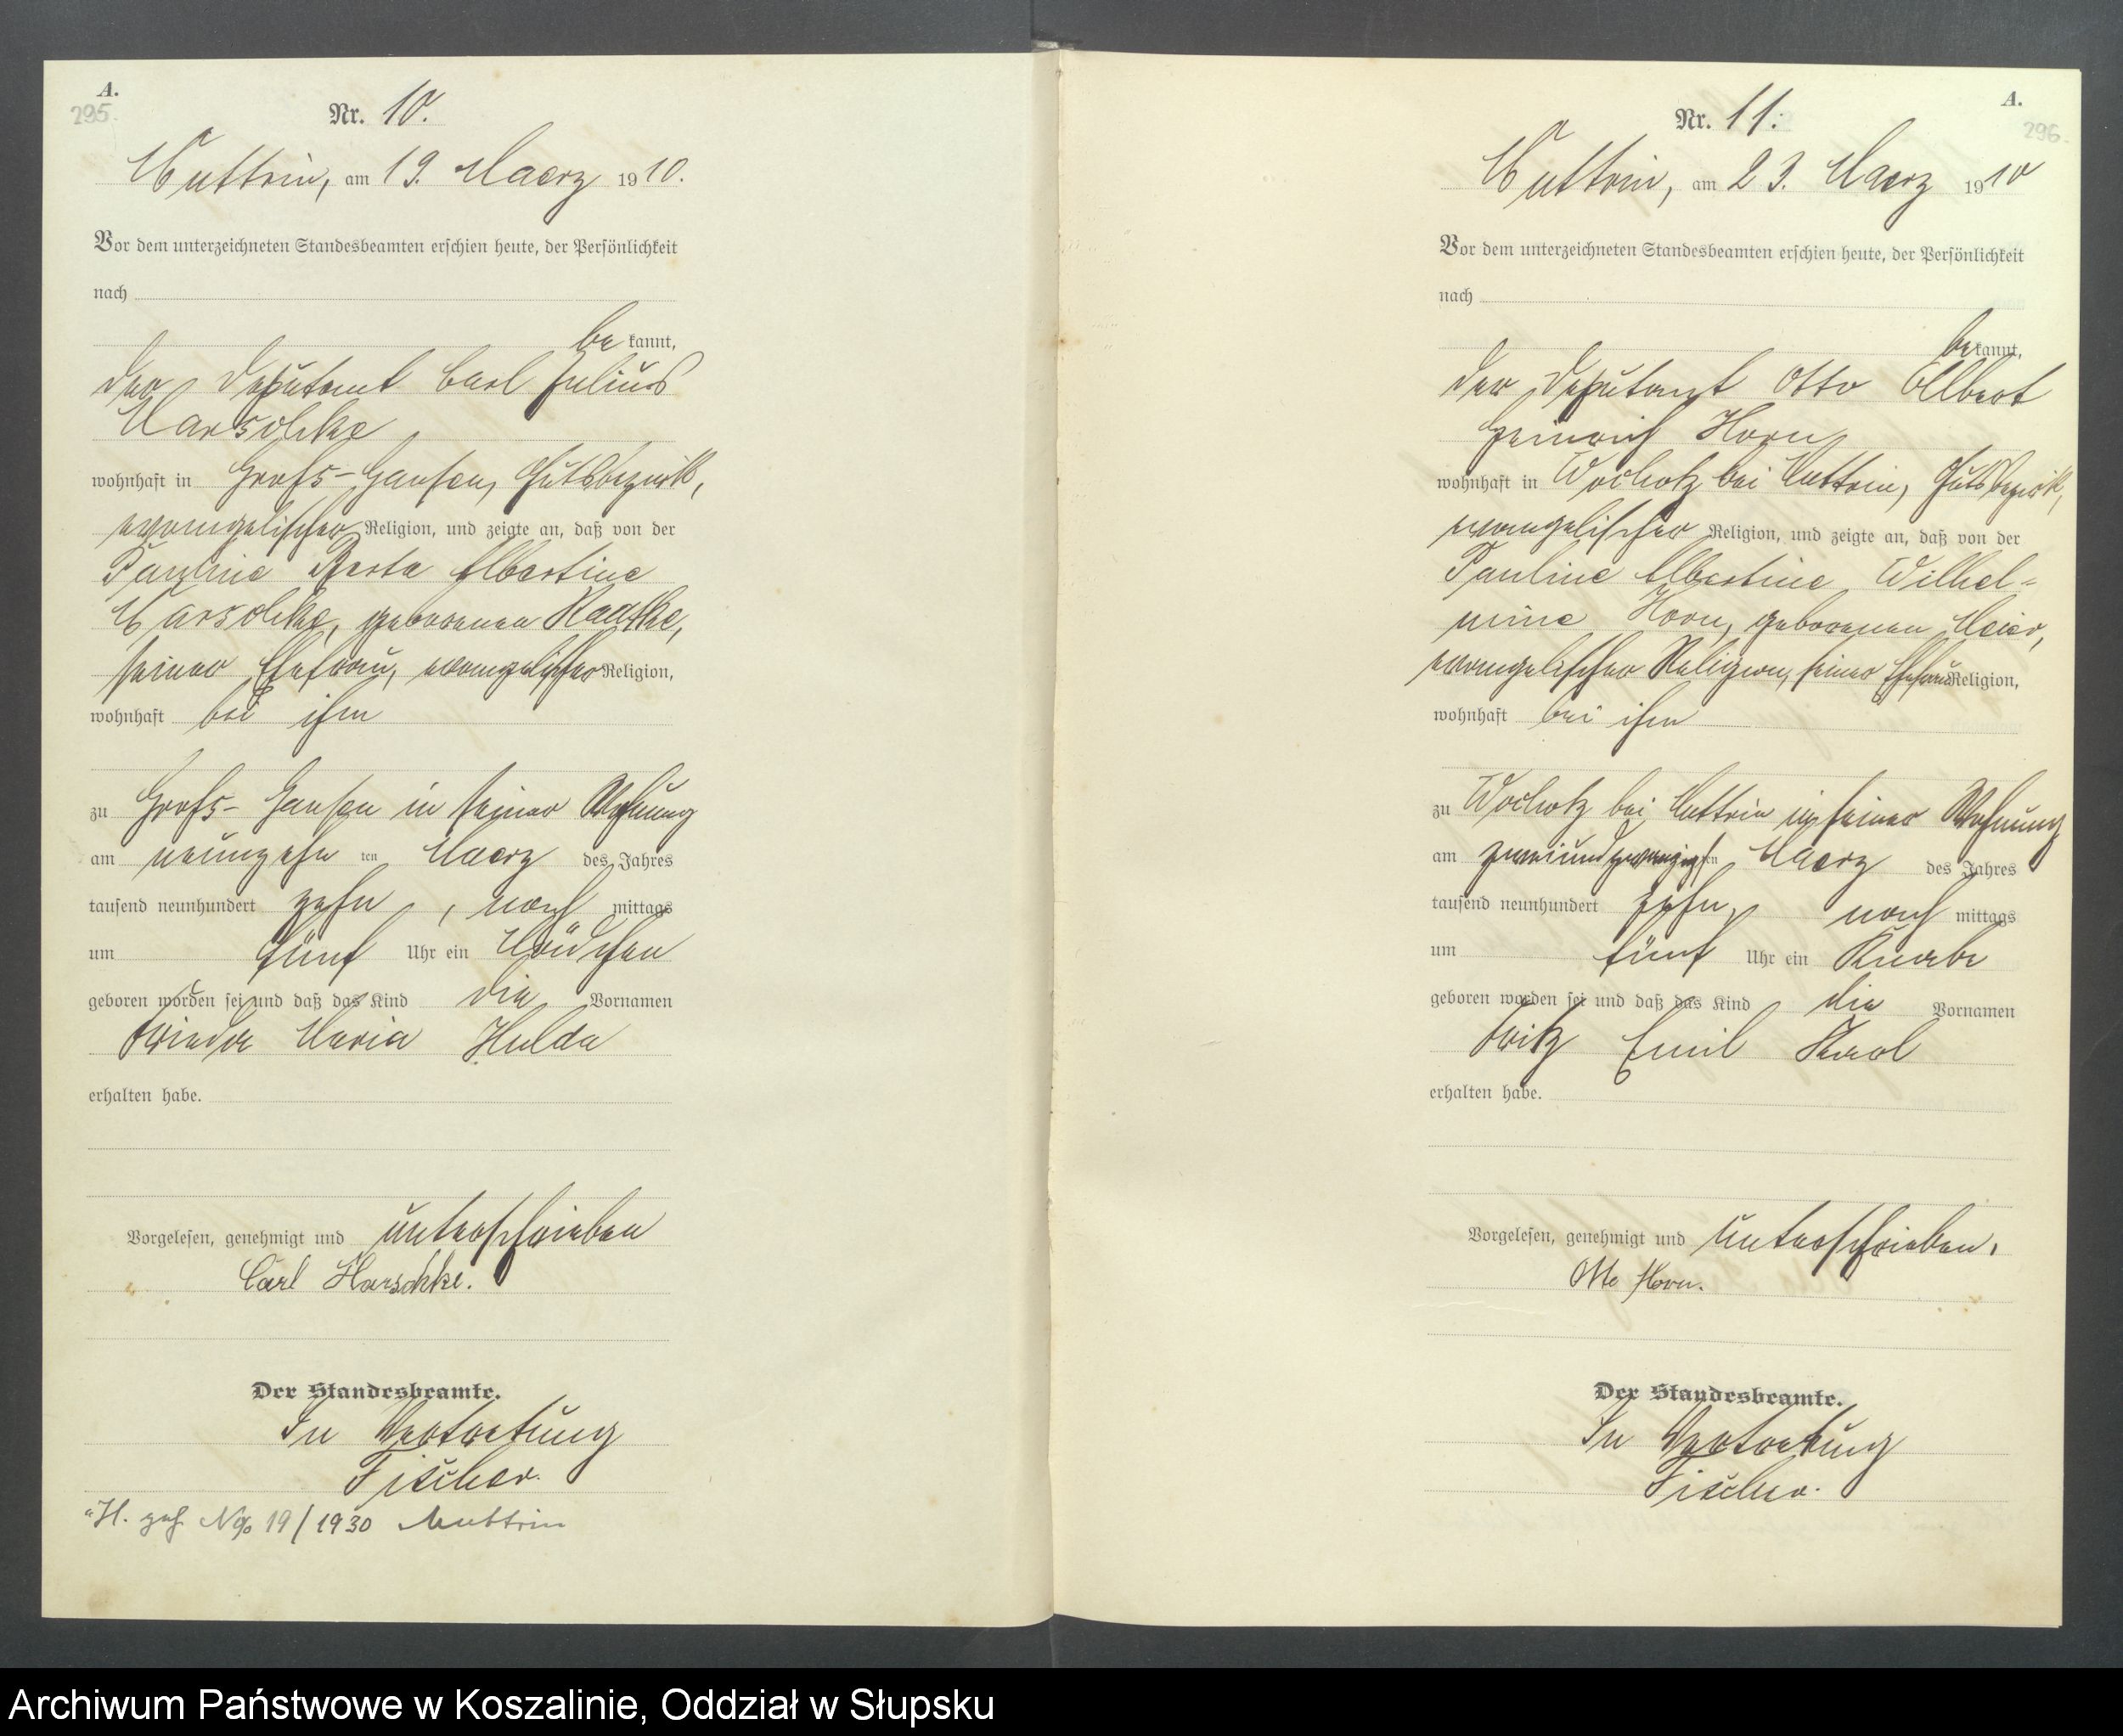 A.
295.
Nr. 10.
Muttrin, am 19. Maerz 1910.
Vor dem unterzeichneten Standesbeamten erschien heute, der Persönlichkeit
nach
be kannt,
der Deputant Carl Julius
Harschke
wohnhaft in Groß-Gansen, Gutsbezirk,
evangelischer Religion, und zeigte an, daß von der
Pauline Berta Albertine
Harschke, geborenen Raaske,
seiner Ehefrau, evangelischer Religion,
wohnhaft bei ihm
zu Groß-Gansen in seiner Wohnung
am neunzehn ten Maerz des Jahres
tausend neunhundert zehn, nach mittags
um fünf Uhr ein Mädchen
geboren worden sei und daß das Kind die Vornamen
Frieda Maria Hulda
erhalten habe.
Vorgelesen, genehmigt und unterschrieben
Carl Harschke.
Der Standesbeamte.
In Vertretung
Fischer.
H. geh. No 19/1930 Muttrin
A.
296.
Nr. 11.
Muttrin, am 23. Maerz 1910
Vor dem unterzeichneten Standesbeamten erschien heute, der Persönlichkeit
nach
be kannt,
der Deputant Otto Albert
Heinrich Horn
wohnhaft in Wocholz bei Muttrin, Gutsbezirk,
evangelischer Religion, und zeigte an, daß von der
Pauline Albertine Wilhel-
mine Horn, geborenen Meier,
evangelischer Religion, seiner Ehefrau Religion,
wohnhaft bei ihm
zu Wocholz bei Muttrin in seiner Wohnung
am zweiundzwanzigsten Maerz des Jahres
tausend neunhundert zehn, nach mittags
um fünf Uhr ein Knabe
geboren worden sei und daß das Kind die Vornamen
Fritz Emil Karl
erhalten habe.
Vorgelesen, genehmigt und unterschrieben.
Otto Horn.
Der Standesbeamte.
In Vertretung
Fischer.
Archiwum Państwowe w Koszalinie, Oddział w Słupsku